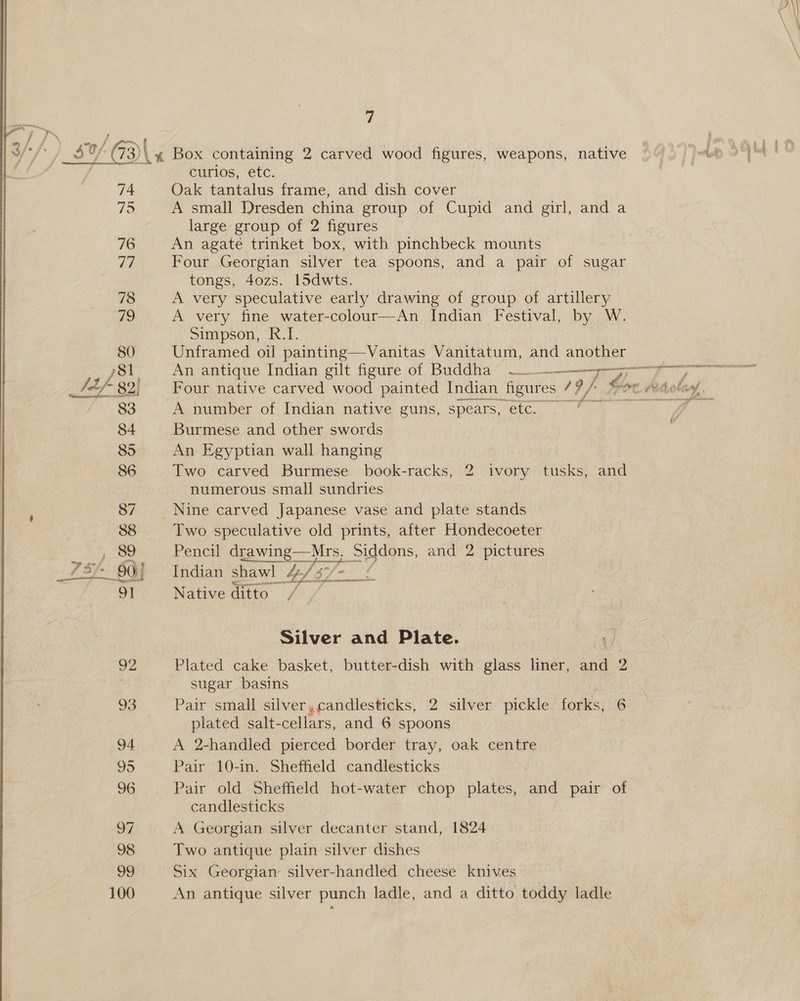 7
3/-/- 50/- (73) x Box containing 2 carved wood figures, weapons, native
curios, etc.
74 Oak tantalus frame, and dish cover
75 A small Dresden china group of Cupid and girl, and a
large group of 2 figures
76 An agate trinket box, with pinchbeck mounts
77 Four Georgian silver tea spoons, and a pair of sugar
tongs, 4ozs. 15dwts.
78 A very speculative early drawing of group of artillery
79 A very fine water-colour—An Indian Festival, by W.
Simpson, R.I.
80 Unframed oil painting—Vanitas Vanitatum, and another
81 An antique Indian gilt figure of Buddha
12/- 82 Four native carved wood painted Indian figures 19/- for
83 A number of Indian native guns, spears, etc.
84 Burmese and other swords
85 An Egyptian wall hanging
86 Two carved Burmese book-racks, 2 ivory tusks, and
numerous small sundries
87 Nine carved Japanese vase and plate stands
88 Two speculative old prints, after Hondecoeter
89 Pencil drawing—Mrs. Siddons, and 2 pictures
75/- 90 Indian shawl 4/5/-
91 Native ditto
Silver and Plate.
92 Plated cake basket, butter-dish with glass liner, and 2
sugar basins
93 Pair small silver candlesticks, 2 silver pickle forks, 6
plated salt-cellars, and 6 spoons
94 A 2-handled pierced border tray, oak centre
95 Pair 10-in. Sheffield candlesticks
96 Pair old Sheffield hot-water chop plates, and pair of
candlesticks
97 A Georgian silver decanter stand, 1824
98 Two antique plain silver dishes
99 Six Georgian silver-handled cheese knives
100 An antique silver punch ladle, and a ditto toddy ladle